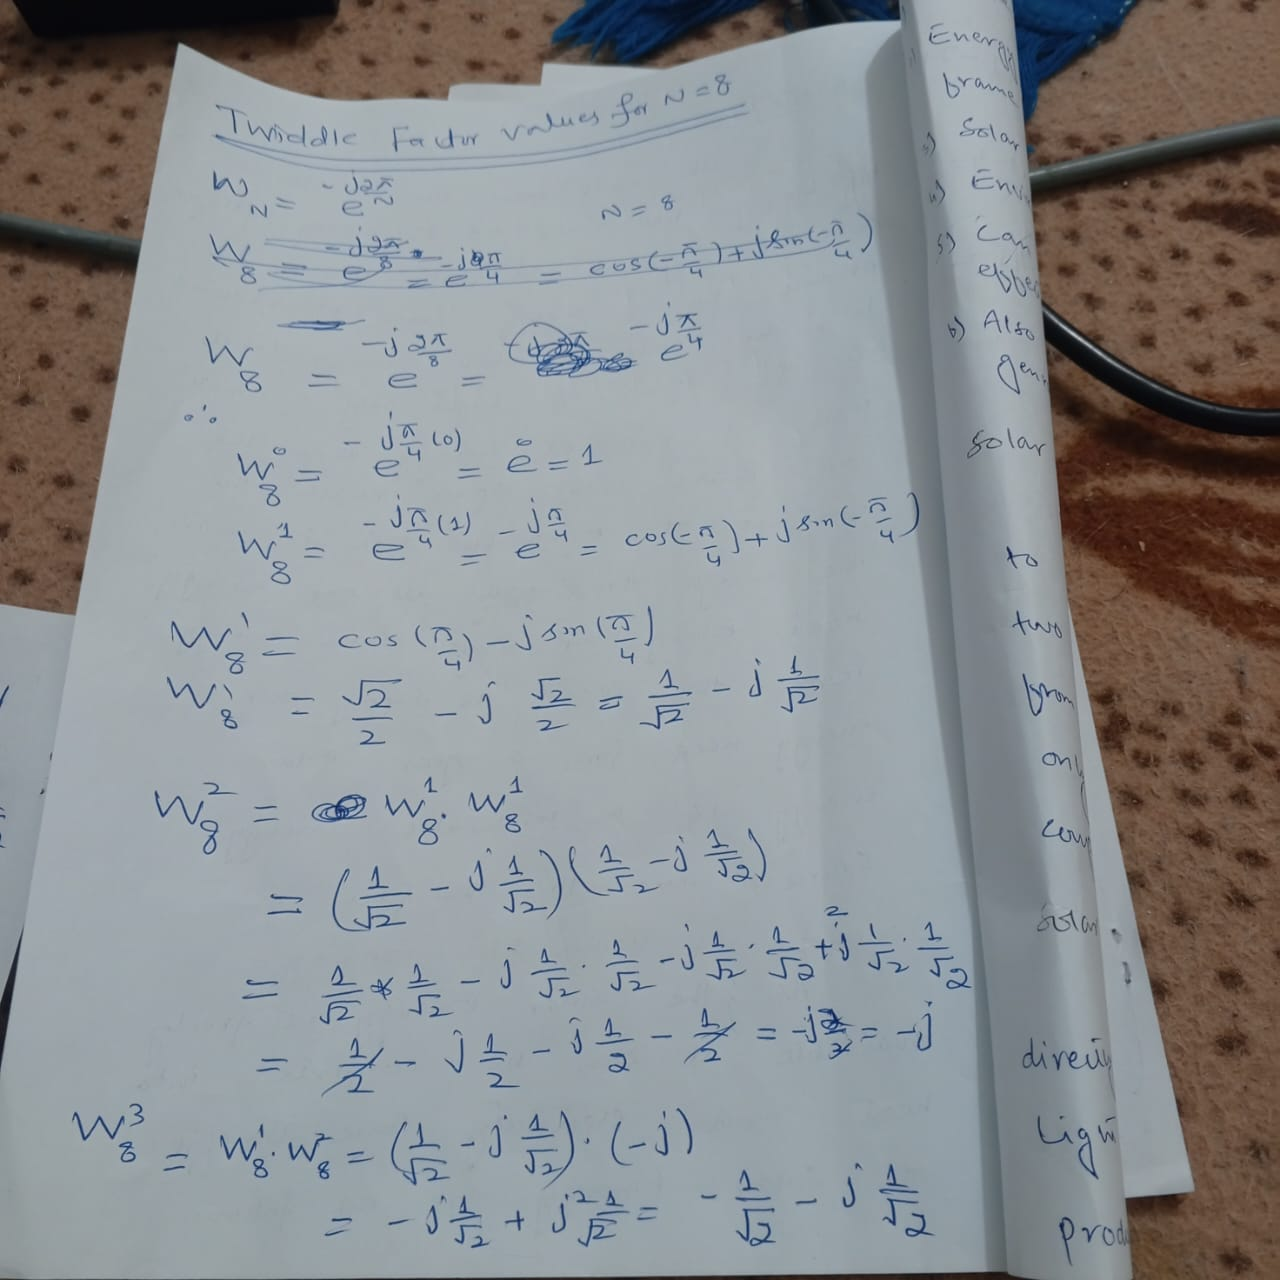 Twiddle Factor values for N=8
W_N = e^{-j2π/N}
N = 8
W_8 = e^{-j2π/8} = e^{-jπ/4} = cos(-π/4)+jsin(-π/4)
W_8 = e^{-j2π/8} = e^{-jπ/4}
∴
W_8^0 = e^{-jπ/4(0)} = e^0 = 1
W_8^1 = e^{-jπ/4(1)} = e^{-jπ/4} = cos(-π/4)+jsin(-π/4)
W_8^1 = cos(π/4)-jsin(π/4)
W_8^1 = √2/2 - j √2/2 = 1/√2 - j 1/√2
W_8^2 = W_8^1 . W_8^1
= (1/√2 - j 1/√2)(1/√2 - j 1/√2)
= 1/√2 * 1/√2 - j 1/√2 . 1/√2 - j 1/√2 . 1/√2 + j^2 1/√2 . 1/√2
= 1/2 - j 1/2 - j 1/2 - 1/2 = -j 2/2 = -j
W_8^3 = W_8^1 . W_8^2 = (1/√2 - j 1/√2) . (-j)
= -j 1/√2 + j^2 1/√2 = - 1/√2 - j 1/√2
Energy
frame
Solar
5) Can
6) Also
solar
to
two
from
solar